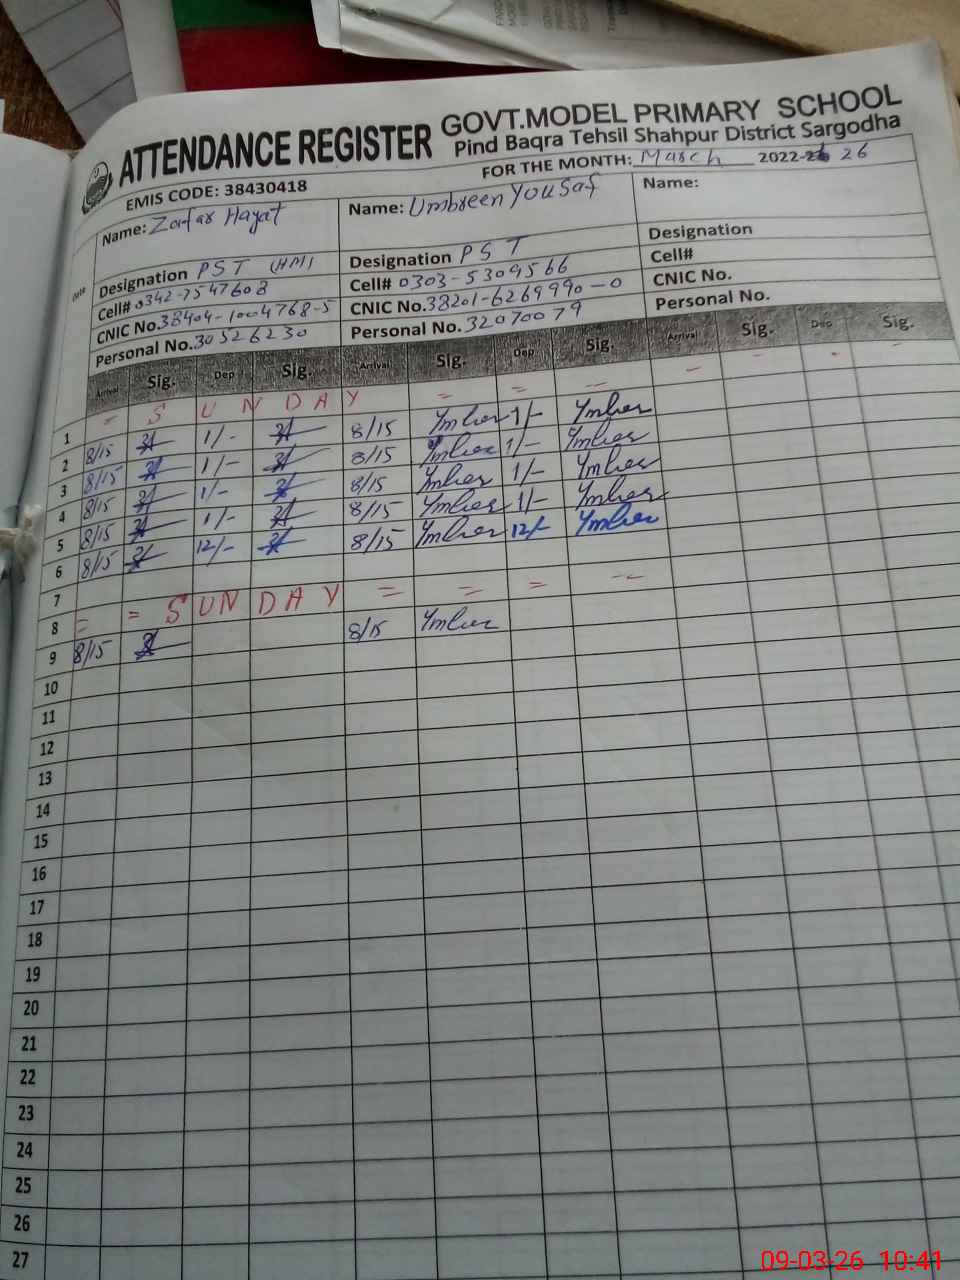 GOVT.MODEL PRIMARY SCHOOL
ATTENDANCE REGISTER
Pind Baqra Tehsil Shahpur District Sargodha
EMIS CODE: 38430418
FOR THE MONTH: March 2022- 26
Date
Name: Zafar Hayat
Name: Umbreen Yousaf
Name:
Designation PST (HM)
Designation PST
Designation
Cell# 0342-7547608
Cell# 0303-5309566
Cell#
CNIC No. 38404-1004768-5
CNIC No. 38201-6269990-0
CNIC No.
Personal No. 30526230
Personal No. 32070079
Personal No.
Arrival Sig. Dep Sig. Arrival Sig. Dep Sig. Arrival Sig. Dep Sig.
1 = SUNDAY = = --
2 8/15 1/- 8/15 1/-
3 8/15 1/- 8/15 1/-
4 8/15 1/- 8/15 1/-
5 8/15 1/- 8/15 1/-
6 8/15 12/- 8/15 12/-
7
8 = = SUNDAY = = = --
9 8/15 8/15
10
11
12
13
14
15
16
17
18
19
20
21
22
23
24
25
26
27
09-03-26 10:41